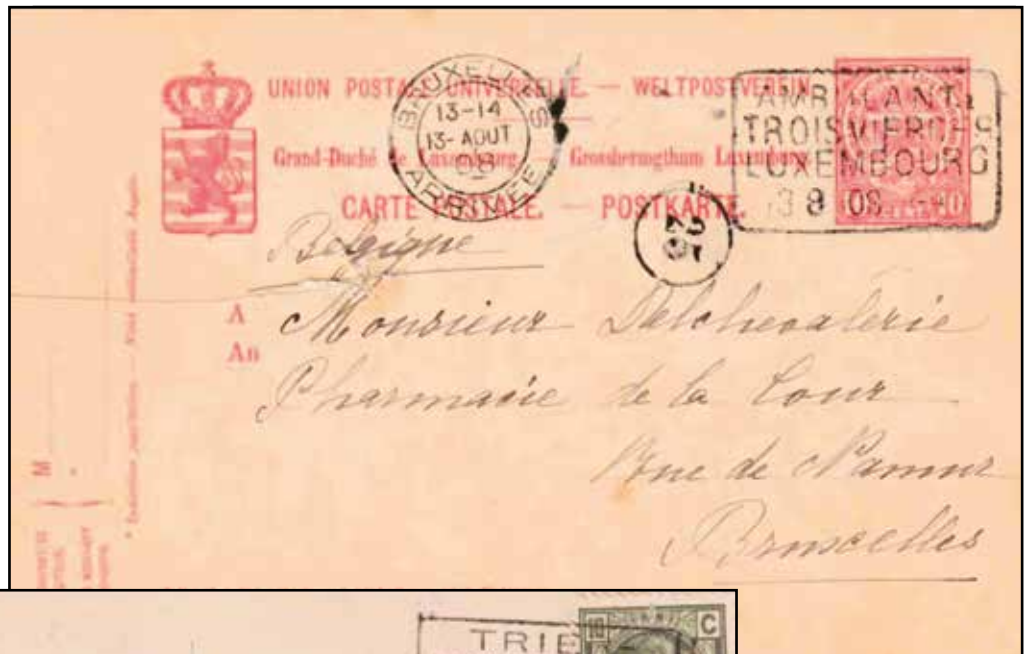 UNION POSTALE UNIVERSELLE. — WELTPOSTVEREIN.
Grand-Duché de Luxembourg. — Grossherzogthum Luxemburg.
CARTE POSTALE. — POSTKARTE.
BRUXELLES
13-14
13-AOUT
08
ARRIVÉE
AMBULANT
TROISVIERGES
LUXEMBOURG
8 08
10
Belgique
A Monsieur Delchevalerie
An
Pharmacie de la Cour
Rue de Namur
Bruxelles
M
TRIE
10 C